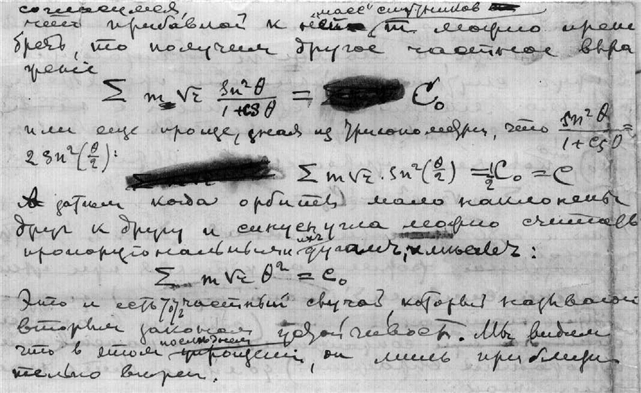 "масс" спутников
чего прибавкой к ней m можно прене
бречь, то получем другое частное выра
жение
Σ m √r sn²θ / 1 + cs θ = C₀
или еще проще, зная из тригонометрии, что sn²θ / 1 + cs θ =
2 sn²(θ/2):
Σ m √r . sn²(θ/2) = ½ C₀ = C
А затем когда орбиты мало наклонены
друг к другу и синус угла можно считать
пропорциональным дугам, имеем:
Σ m √r θ² = C₀
Это и есть частный случай который называют
вторым законом устойчивости. Мы видим
что в этом последнем он лишь приблизи
тельно верен.